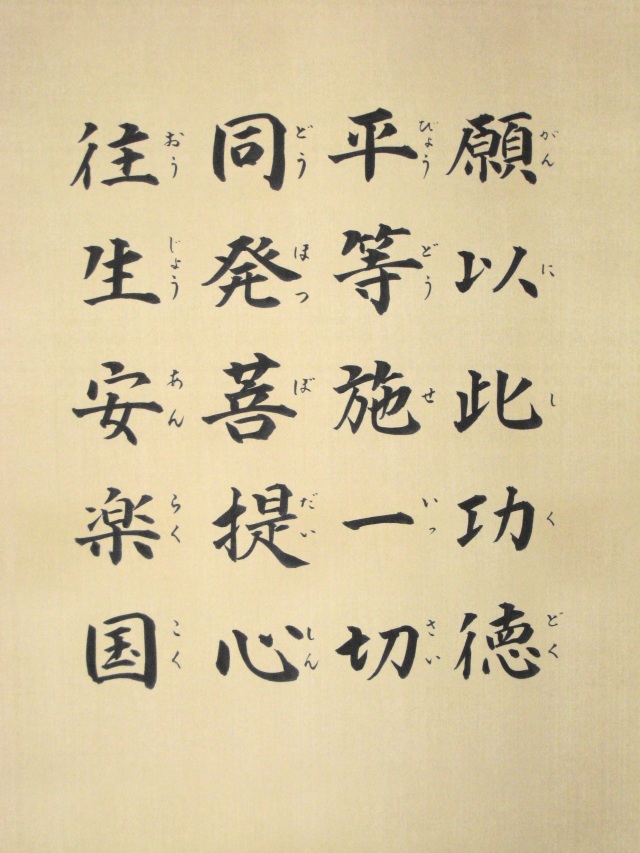 願以此功徳
がんにしくどく
平等施一切
びょうどうせいっさい
同発菩提心
どうほつぼだいしん
往生安楽国
おうじょうあんらくこく